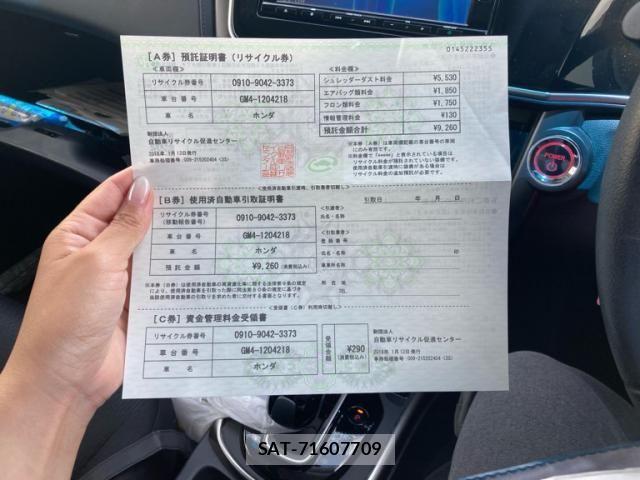 0145222355
[A券] 預託証明書（リサイクル券）
＜車両欄＞
リサイクル券番号 0910-9042-3373
車台番号 GM4-1204218
車名 ホンダ
＜料金欄＞
シュレッダーダスト料金 ¥5,530
エアバッグ類料金 ¥1,850
フロン類料金 ¥1,750
情報管理料金 ¥130
預託金額合計 ¥9,260
財団法人
自動車リサイクル促進センター
[B券] 使用済自動車引取証明書
引取日 年 月 日
リサイクル券番号
(移動報告番号)
0910-9042-3373
車台番号 GM4-1204218
車名 ホンダ
預託金額 ¥9,260 (消費税込み)
氏名・名称
登録番号
氏名・名称 印
事業所名称
所在地
TEL
[C券] 資金管理料金受領書
リサイクル券番号 0910-9042-3373
車台番号 GM4-1204218
車名 ホンダ
受領金額 ¥290
(消費税込み)
財団法人
自動車リサイクル促進センター
POWER
SAT-71607709